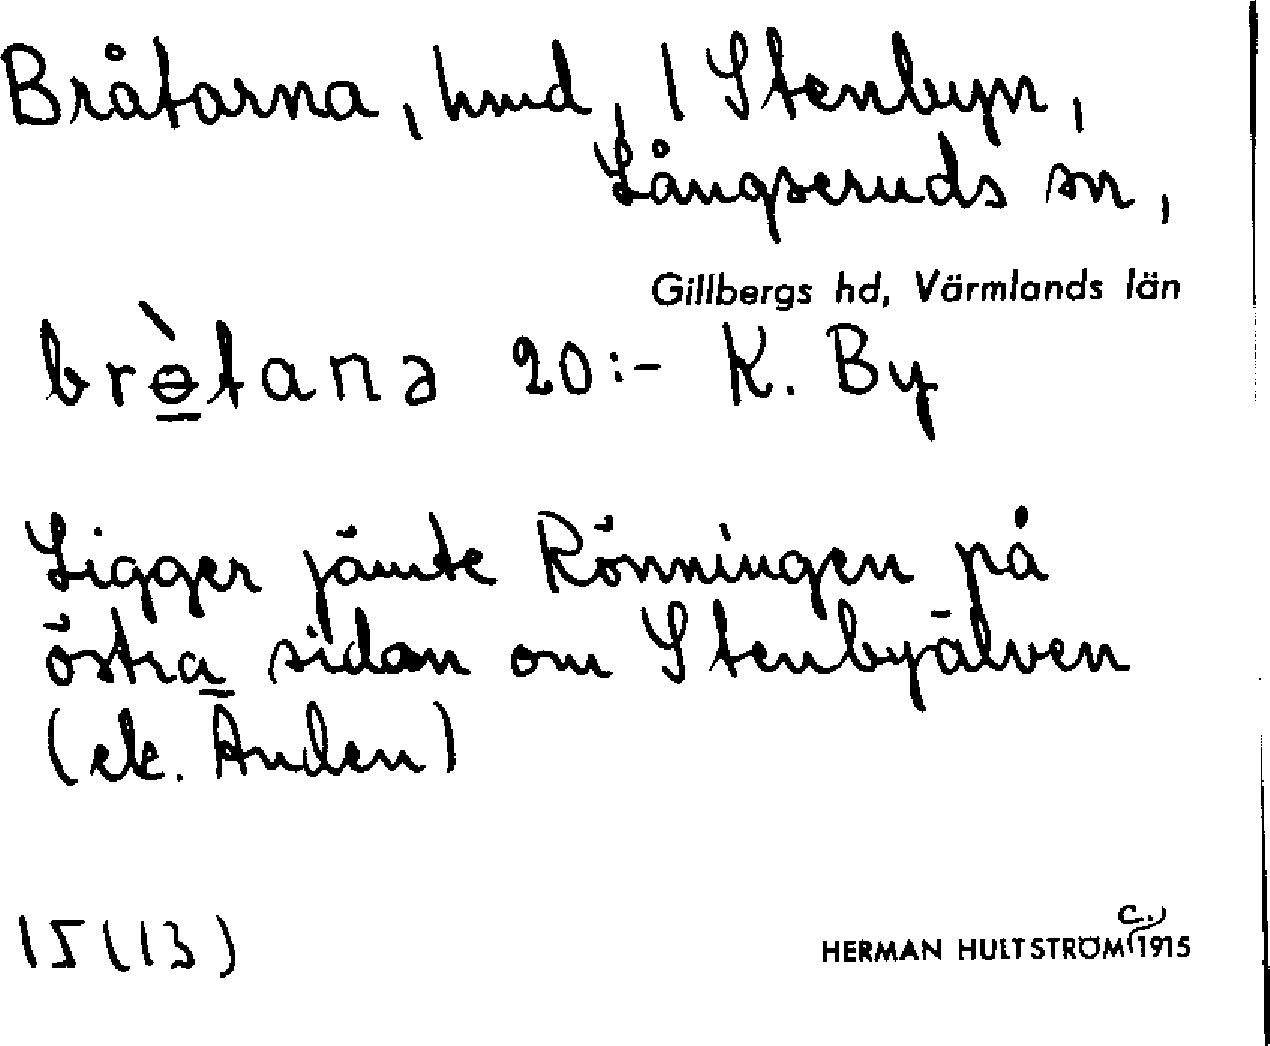 Bråtarna, hmd, 1 Stenbyn,
Långseruds sn,
Gillbergs hd, Värmlands län
brɵ̠̀tana 20:- K. By
Ligger jämte Rönningen på
östra sidan om Stenbyälven
(ek. Änden)
15(13)
HERMAN HULTSTRÖM (c.) 1915